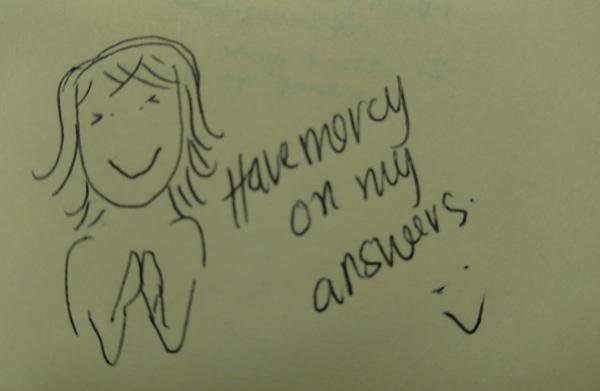 Have mercy
on my
answers.